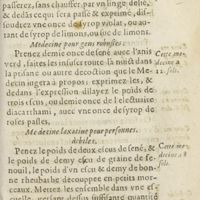 passerez, sans chauffer, par vn linge, delié,
& de dãs ce qui sera passé & exprimé, dis-
soudrez vne once de syrop violat, ou au-
tant de syrop de limons, ou suc de limons.
Medecine pour gens robustes.
Prenez demie once de sené auec l'anis
verd, faites les infuser toute la nuict dans
la ptisane ou autre decoction que le Me-
decin iugera à propos: exprimez les, &
dedans l'expression dilayez le poids de
trois escus, ou demie once de l'electuaire
diacarthami, auec vne once de syrop de
roses pasles.
Ceste me-
decine a
12. sols.
Medecine laxatiue pour personnes
debiles.
Penez le poids de deux escus de sené, &
le poids de demy escu de graine de fe-
nouil, le poids d'vn escu & demy de bon-
ne rheubarbe decouppee en petits mor-
ceaux. Mettez les ensemble dans vne es-
Ceste me-
decine a